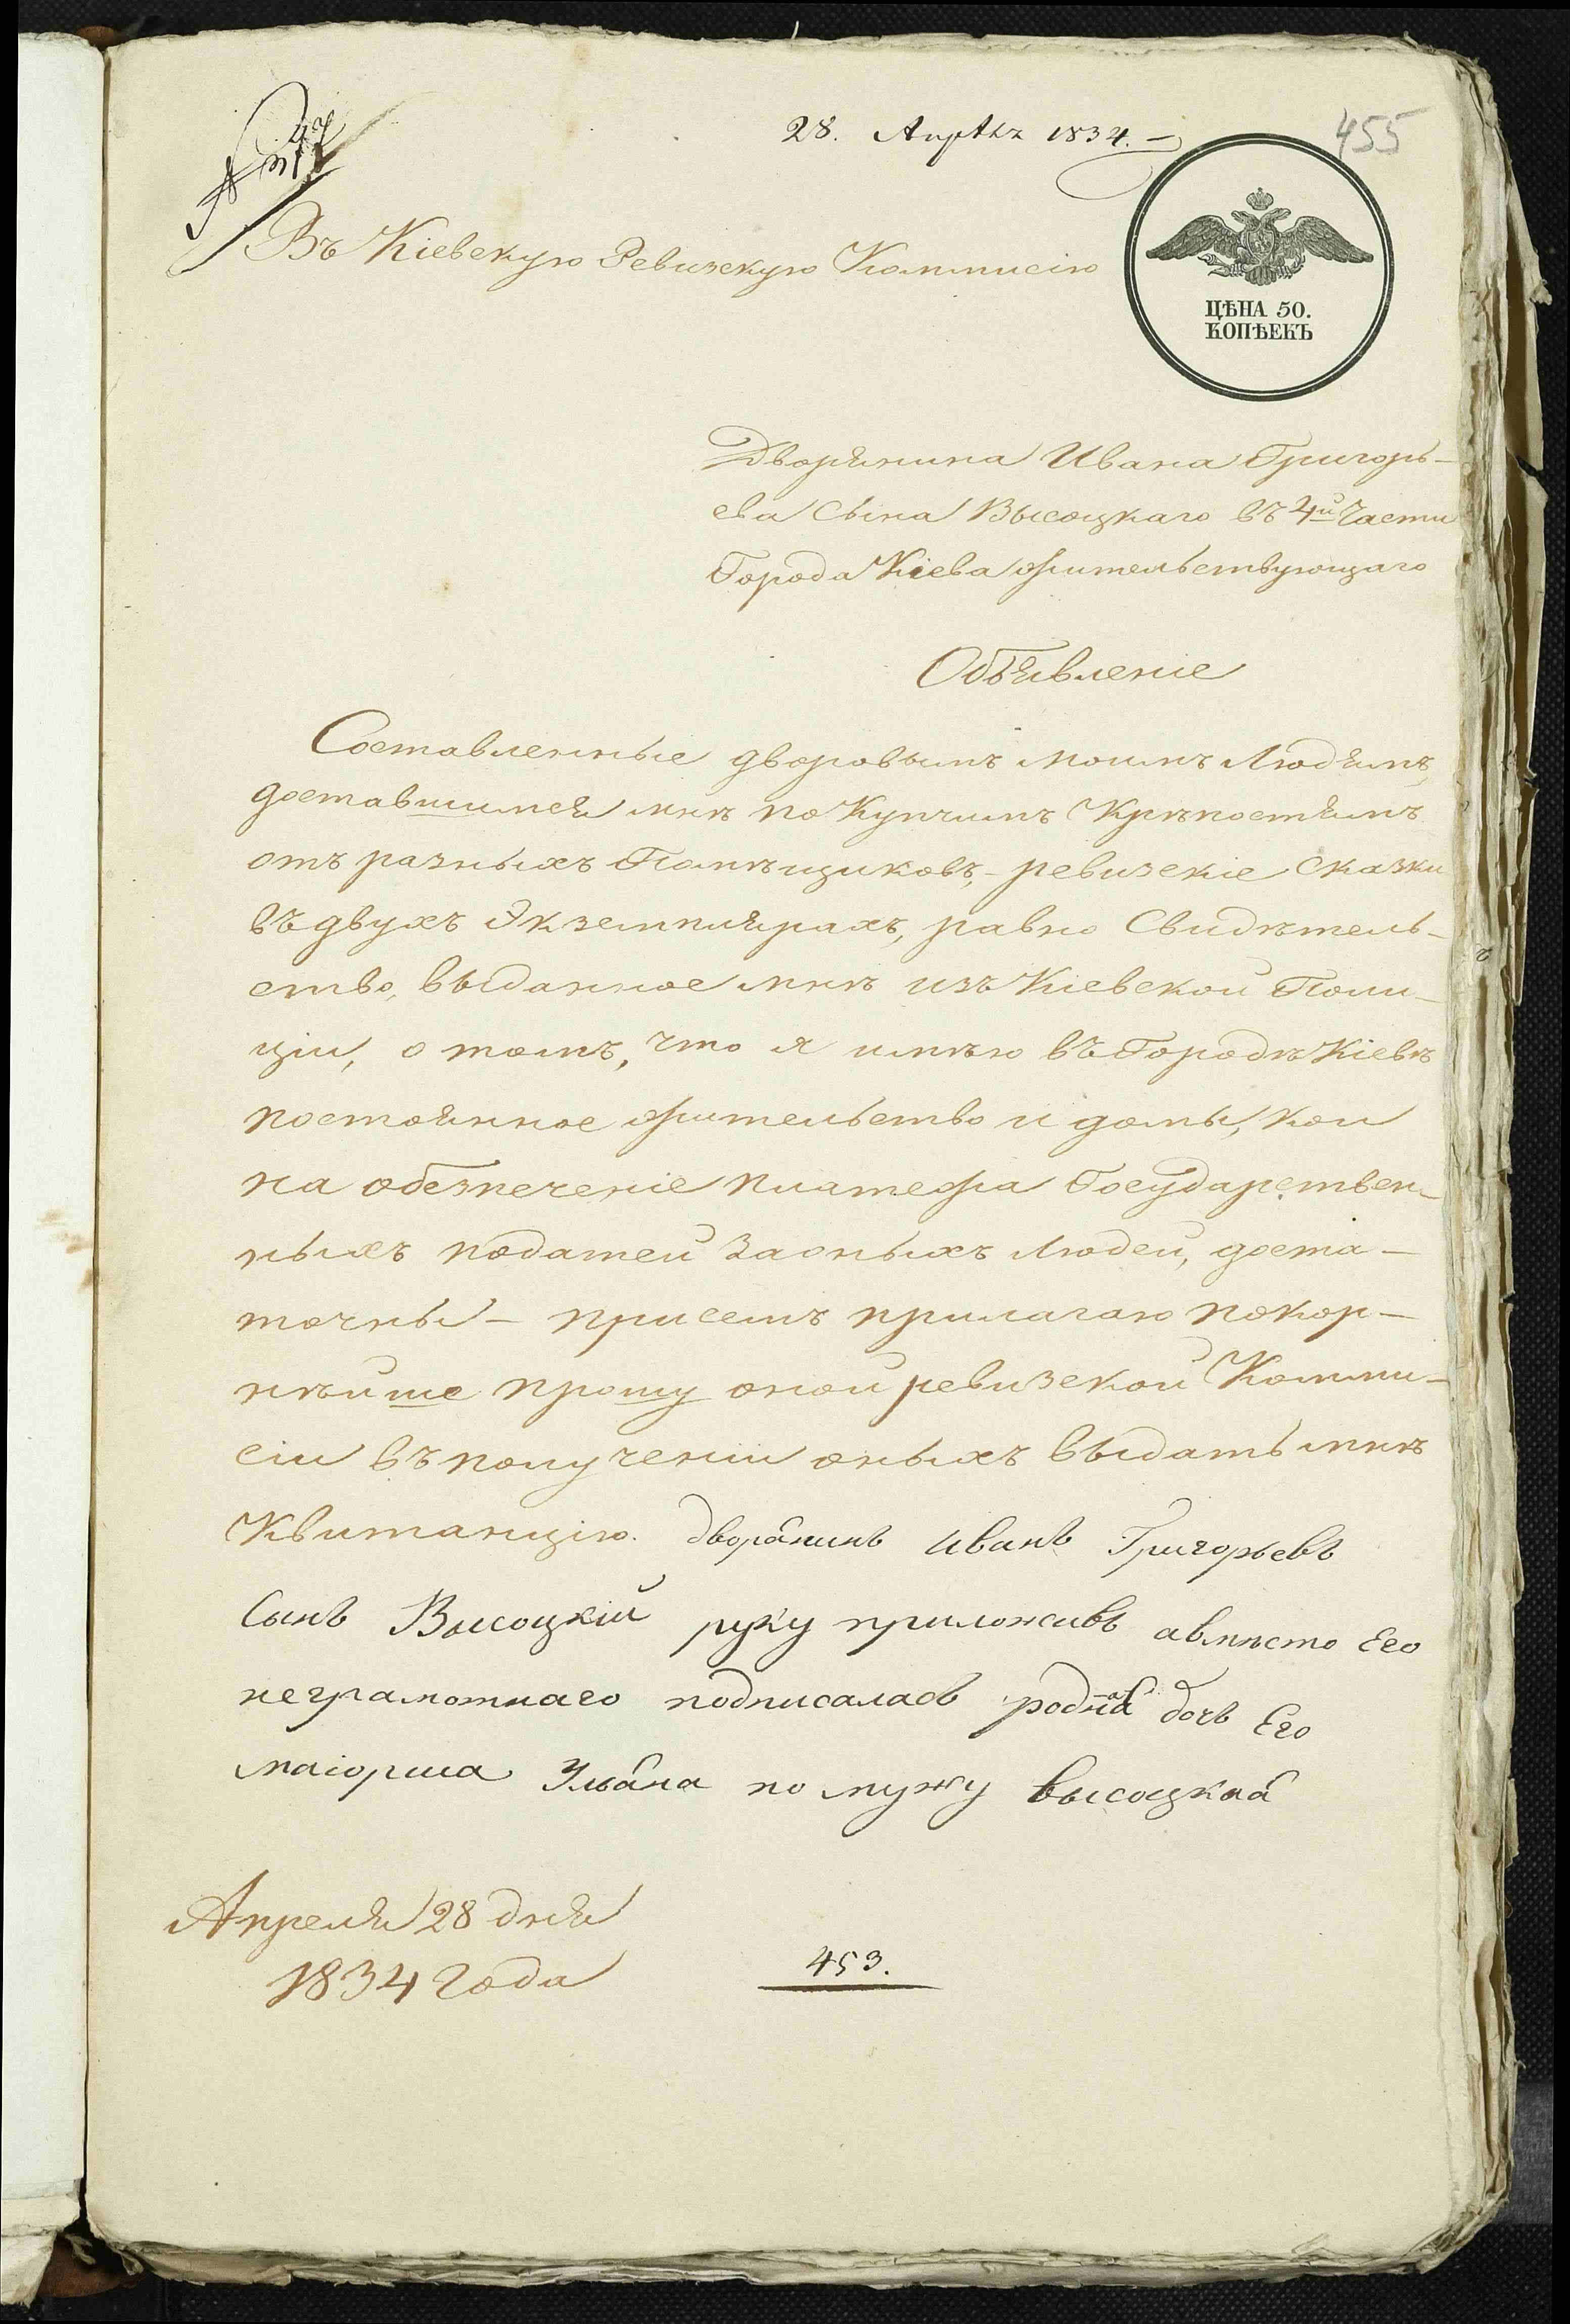 455
28. Апрѣля 1834.
Въ Кіевскую Ревизскую Коммисію
ЦѢНА 50.
КОПѢЕКЪ
Дворянина Ивана Григорь-
ева Сына Высоцкаго въ 4й Части
Города Кіева жительствующаго
Объявленіе
Составленные дворовымъ моимъ Людямъ,
доставшимся мнѣ по Купчимъ Крѣпостямъ
отъ разныхъ Помѣщиковъ,- ревизскіе Сказки
въ двухъ Экземплярахъ, равно Свидѣтель-
ство, выданное мнѣ изъ Кіевской Поли-
ціи, о томъ, что я имѣю въ Городѣ Кіевѣ
постоянное жительство и домы, кои
на обезпеченіе платежа Государствен-
ныхъ податей за оныхъ Людей, доста-
точны - при семъ прилагаю покор-
нѣйше прошу оной ревизской Комми-
сіи въ полученіи оныхъ выдать мнѣ
Квитанцію. дворянинъ Иванъ Григорьевъ
Сынъ Высоцкій руку приложивъ авмѣсто Его
неграмотнаго подписалась родная дочь Его
маіорша Ульяна по мужу высоцкая
Апреля 28 дня
1834 Года
453.